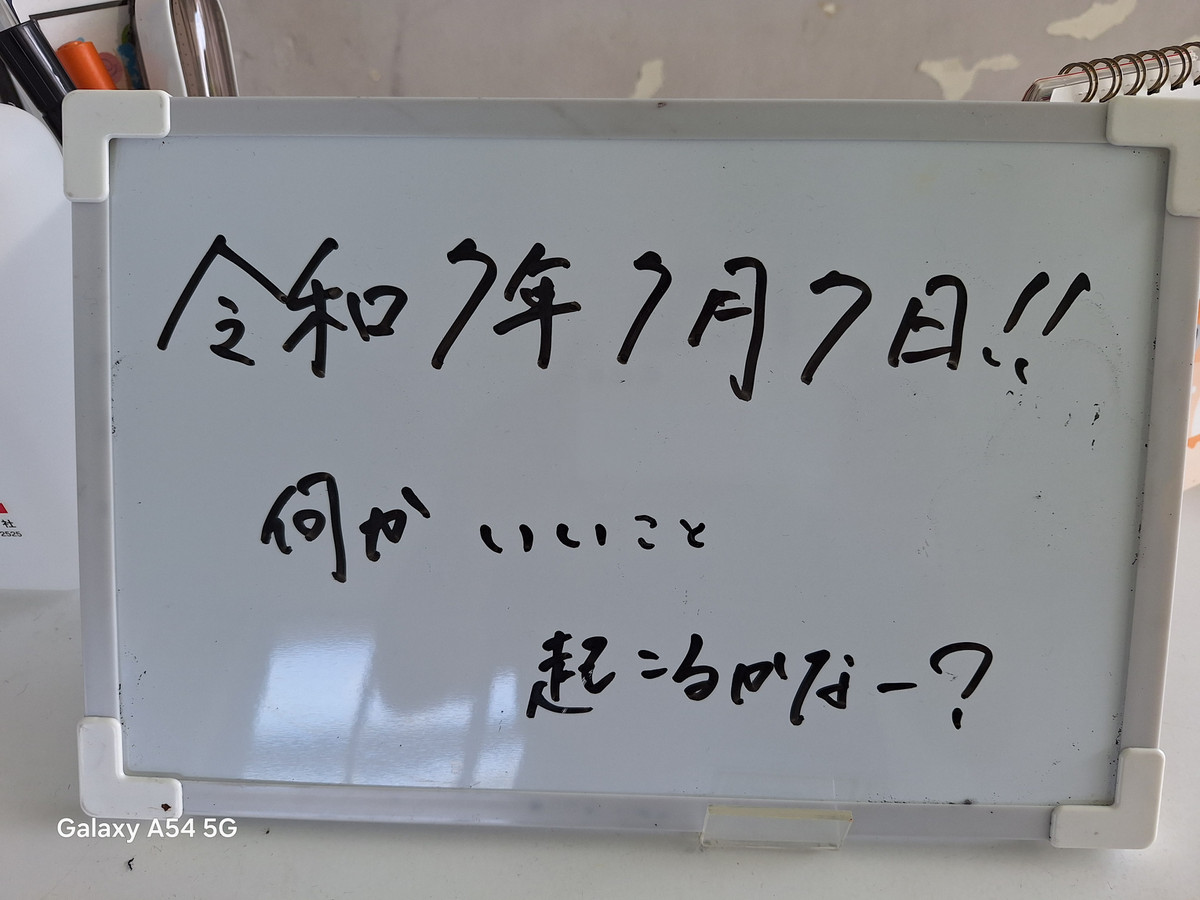 令和7年7月7日!!
何かいいこと
起こるかなー?
社
2525
Galaxy A54 5G